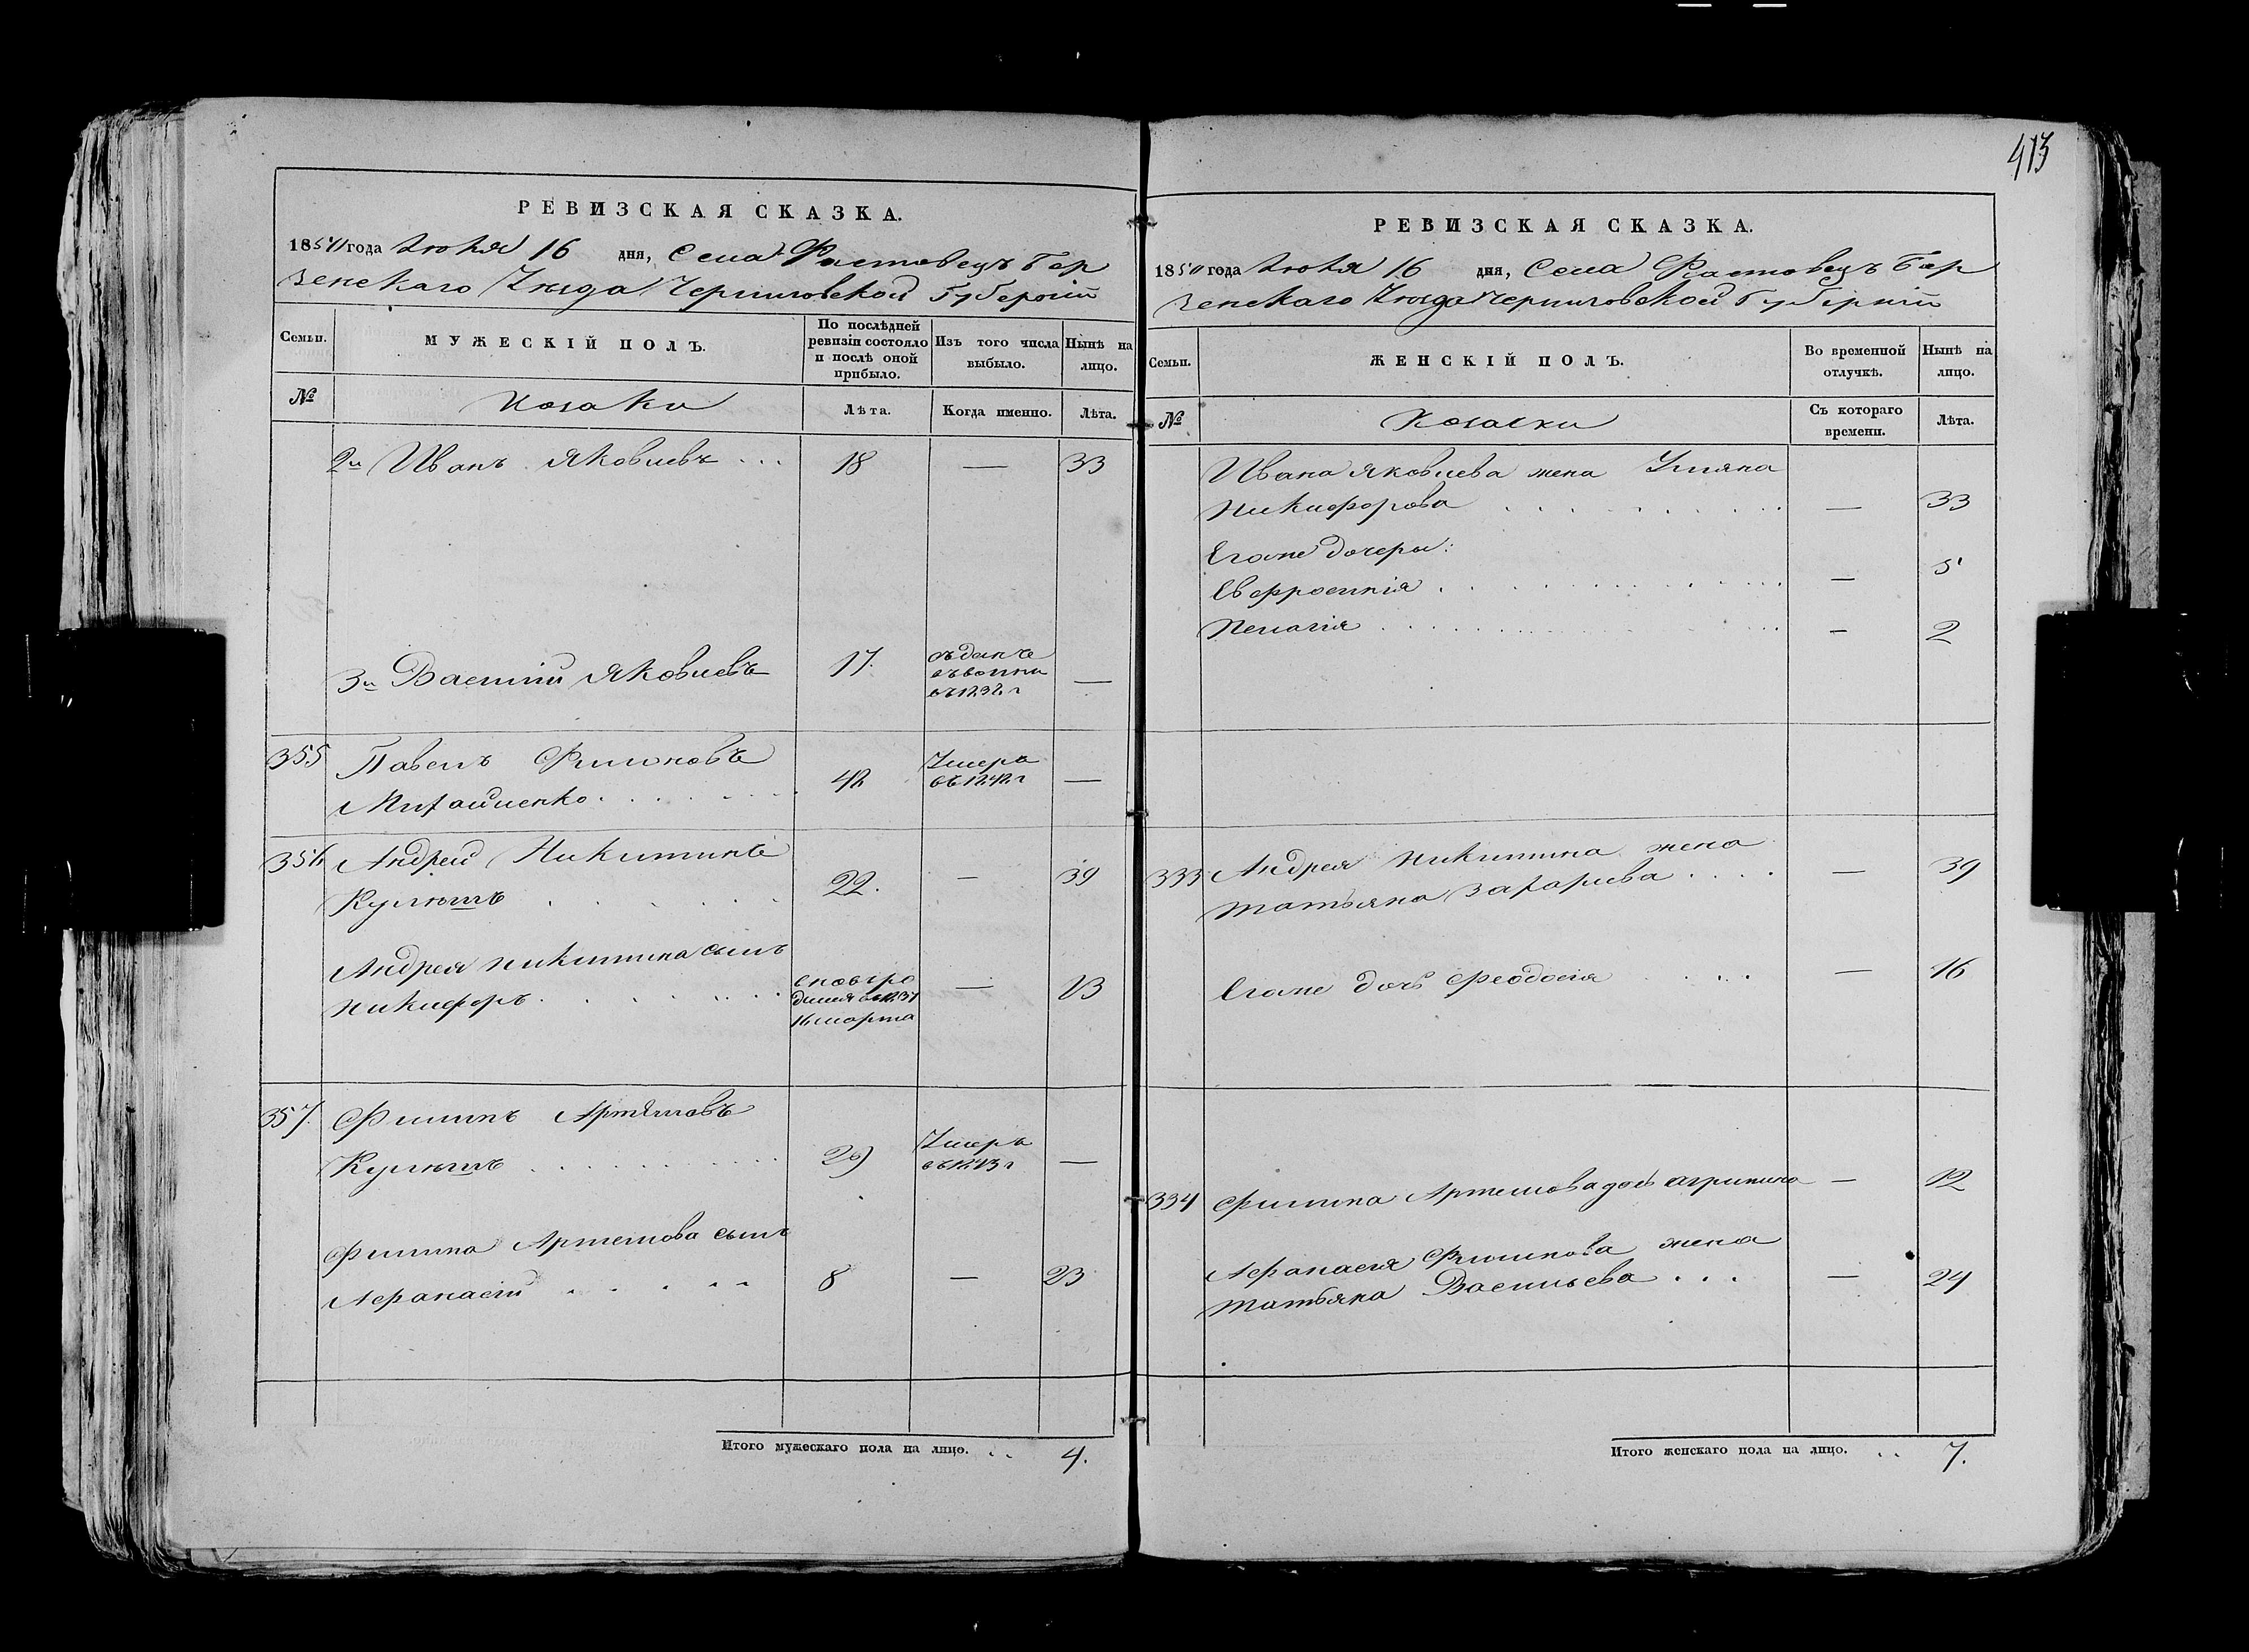 413
РЕВИЗСКАЯ СКАЗКА.
1850 года Июля 16 дня, Села Фастовецъ Бор
зенскаго Уѣзда Черниговской Губерніи
Семьи.
МУЖЕСКІЙ ПОЛЪ.
По послѣдней ревизіи состояло и послѣ оной прибыло.
Изъ того числа выбыло.
Нынѣ на лицо.
№
Козаки
Лѣта.
Когда именно.
Лѣта.
2й Иванъ Яковлевъ 18 — 33
3й Василій Яковлевъ 17. отданъ —
355 Павелъ Филиповъ
42 Умеръ въ 1842 г —
356 Андрей Никитинъ
Кулѣшъ 22. — 39
Андрея Никитина сынъ
Никифоръ — 13
16 марта
357. Филипъ Артемовъ
Кулѣшъ 29 Умеръ въ 1843 г —
Филипа Артемова сынъ
Афанасій 8 — 23
Итого мужескаго пола на лицо. 4.
РЕВИЗСКАЯ СКАЗКА.
1850 года Июля 16 дня, Села Фастовецъ Бор
зенскаго Уѣзда Черниговской Губерніи
Семьи.
ЖЕНСКІЙ ПОЛЪ.
Во временной отлучкѣ.
Нынѣ на лицо.
№
Козачки
Съ котораго времени.
Лѣта.
Ивана Яковлева жена Ульяна
Никифорова — 33
Егоже дочери:
Евфросинія — 5
Пелагія — 2
333 Андрея Никитина жена
Татьяна Захарьева — 39
Егоже дочь Феодосія — 16
334 Филипа Артемова дочь Агрипина — 12
Афанасія Филипова жена
Татьяна Васильева — 24
Итого женскаго пола на лицо. 7.